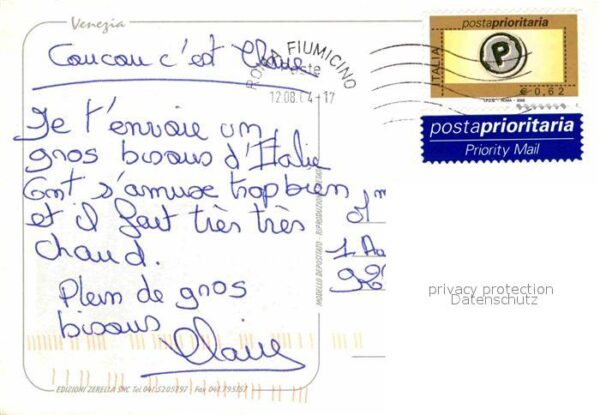 Venezia
Coucou c'est Claire
Je t'envoie un
gros bisous d'Italie
Ont s'amuse trop bien
et il fait très très
chaud.
Plein de gros
bisous
Claire
EDIZIONI ZERELLA SNC Tel. 041.5205797 - Fax 041.795757
MODELLO DEPOSITATO - RIPRODUZIONE VIETATA
ROMA FIUMICINO
Poste
12.08.04-17
postaprioritaria
P
ITALIA
€ 0,62
postaprioritaria
Priority Mail
1
92
privacy protection
Datenschutz